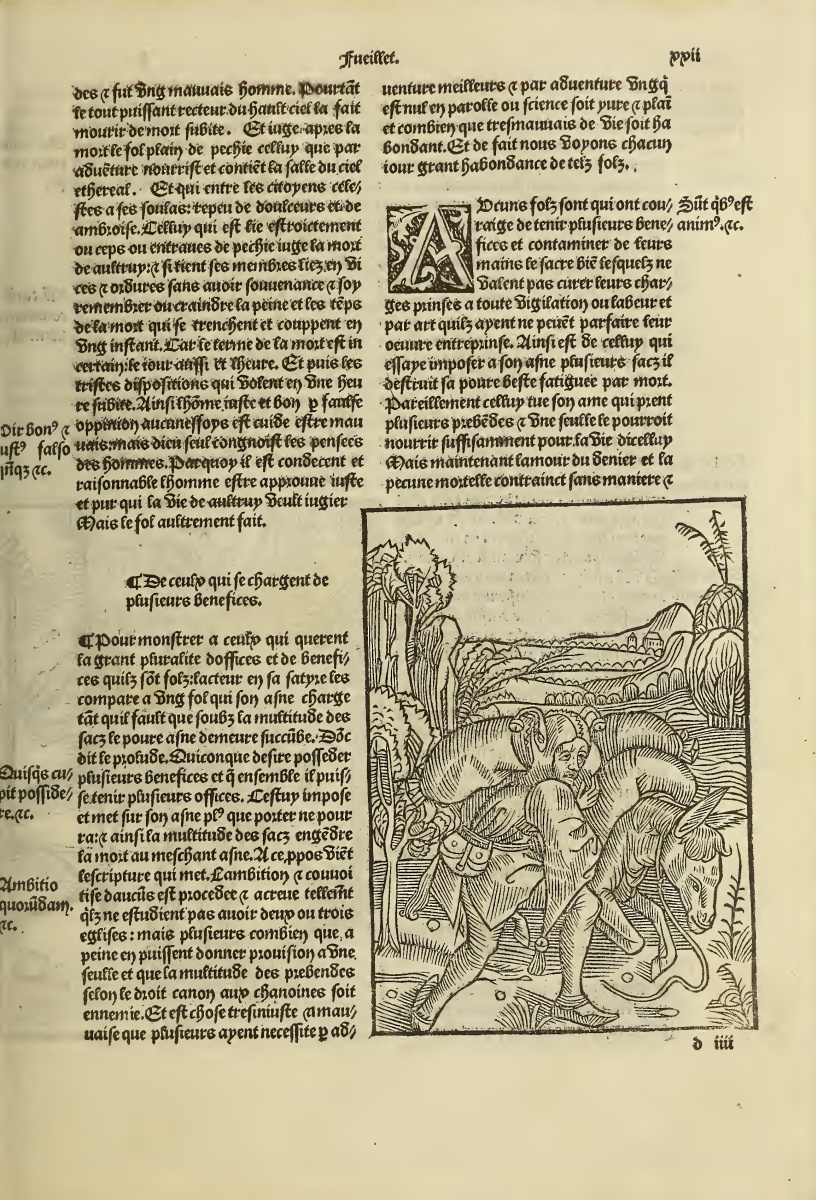 Fueillet.
xxii
des ⁊ fut vng mauuais homme. Pourtāt
le tout puissant recteur du hault ciel la fait
mourir de mort subite. Et iuge apres la
mort le fol plain de pechie celluy que par
aduēture nourrist et contiēt la salle du ciel
ethereal. Et qui entre les citoyens cele/
stes a ses soulas: repeu de doulceurs et de
ambroise. Celluy qui est lie estroictement
ou ceps ou entraues de pechie iuge la mort
de aultruy: ⁊ si tient ses membres liez en vi
ces ⁊ ordures sans auoir souuenance ⁊ soy
remembrer ou craindre la peine et les tēps
de la mort qui se trenchent et couppent en
vng instant. Car le terme de la mort est in
certain: le iour aussi et lheure. Et puis les
tristes dispositions qui volent en vne heu
re subite. Ainsi lhōme iuste et bon p faulse
oppinion aucuneffoys est cuide estre mau
uais: mais dieu seul congnoist les pensees
des hommes. Parquoy il est condecent et
raisonnable lhomme estre approuue iuste
et pur qui la vie de aultruy veult iugier
Mais le fol aultrement fait.
Vir bonꝰ ⁊
iustꝰ falso
⁊c.
¶ De ceulx qui se chargent de
plusieurs benefices.
¶ Pour monstrer a ceulx qui querent
la grant pluralite doffices et de benefi/
ces quilz sōt folz: lacteur en sa satyre les
compare a vng fol qui son asne charge
tāt quil fault que soubz la multitude des
sacz le poure asne demeure succūbe. Dōc
dit le profude. Quiconque desire posseder
plusieurs benefices et q̄ ensemble il puis/
se tenir plusieurs offices. Cestuy impose
et met sur son asne plꝰ que porter ne pour
ra: ⁊ ainsi la multitude des sacz engēdre
la mort au meschant asne. A ce ppos viēt
lescripture qui met. Lambition ⁊ couuoi
tise daucūs est procedee ⁊ acreue tellemēt
q̄lz ne estudient pas auoir deux ou trois
eglises: mais plusieurs combien que a
peine en puissent donner prouision a vne
seulle et que la multitude des prebendes
selon le droit canon aux chanoines soit
ennemie. Et est chose tresiniuste ⁊ mau/
uaise que plusieurs ayent necessite p ad/
Quisq̄s cu/
pit posside/
re. ⁊c.
Ambitio
quorūdam.
⁊c.
uenture meilleurs ⁊ par aduenture vngq̄
est nul en parolle ou science soit pure ⁊ plaī
et combien que tresmauuais de vie soit ha
bondant. Et de fait nous voyons chacun
iour grant habondance de telz folz.
AVcuns folz sont qui ont cou/
raige de tenir plusieurs bene/
fices et contaminer de leurs
mains le sacre biē lesquelz ne
valent pas curer leurs char/
ges prinses a toute vigilation ou labeur et
par art quilz ayent ne peuēt parfaire leur
oeuure entreprinse. Ainsi est de celluy qui
essaye imposer a son asne plusieurs sacz il
destruit sa poure beste fatiguee par mort.
Pareillement celluy tue son ame qui prent
plusieurs prebēdes ⁊ vne seulle le pourroit
nourrir suffisamment pour la vie dicelluy
Mais maintenant lamour du denier et la
pecune mortelle contrainct sans maniere ⁊
Sūt q̄bꝰ est
animꝰ. ⁊c.
d iiii